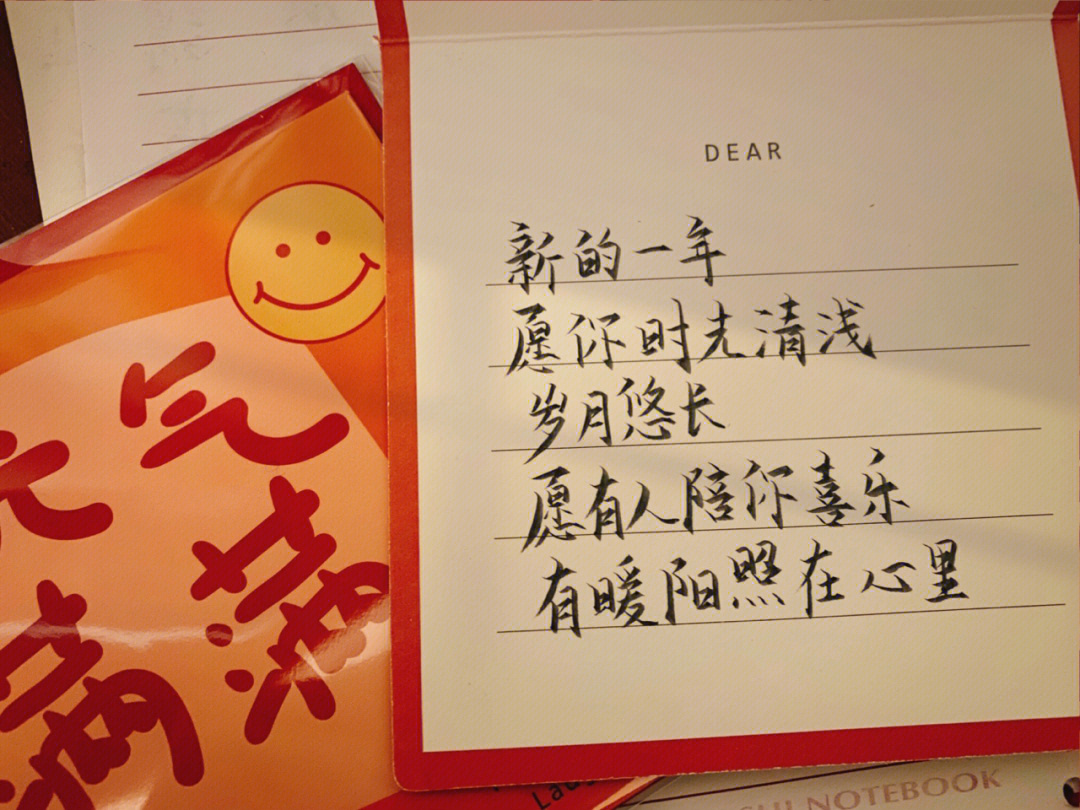 DEAR
新的一年
愿你时光清浅
岁月悠长
愿有人陪你喜乐
有暖阳照在心里
元气
满满
NOTEBOOK